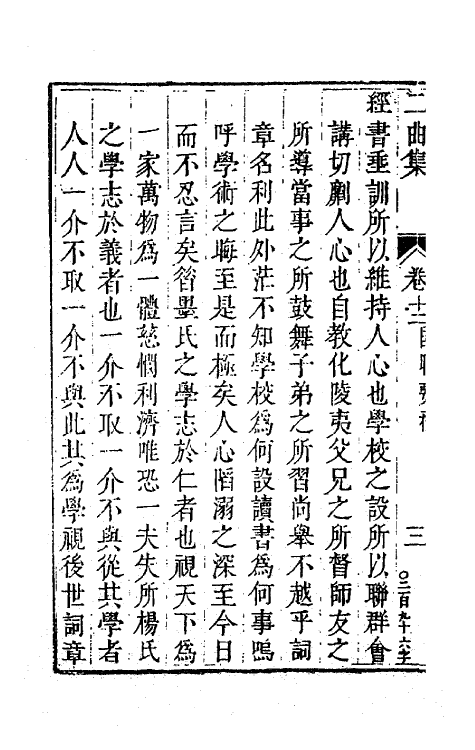 二曲集
卷十二
匡時要務
三
○二百九十六字
經書垂訓所以維持人心也學校之設所以聯群會
講切劘人心也自教化陵夷父兄之所督師友之
所導當事之所鼓舞子弟之所習尚舉不越乎詞
章名利此外茫不知學校爲何設讀書爲何事嗚
呼學術之晦至是而極矣人心陷溺之深至今日
而不忍言矣昔墨氏之學志於仁者也視天下爲
一家萬物爲一體慈憫利濟唯恐一夫失所楊氏
之學志於義者也一介不取一介不與從其學者
人人一介不取一介不與此其爲學視後世詞章